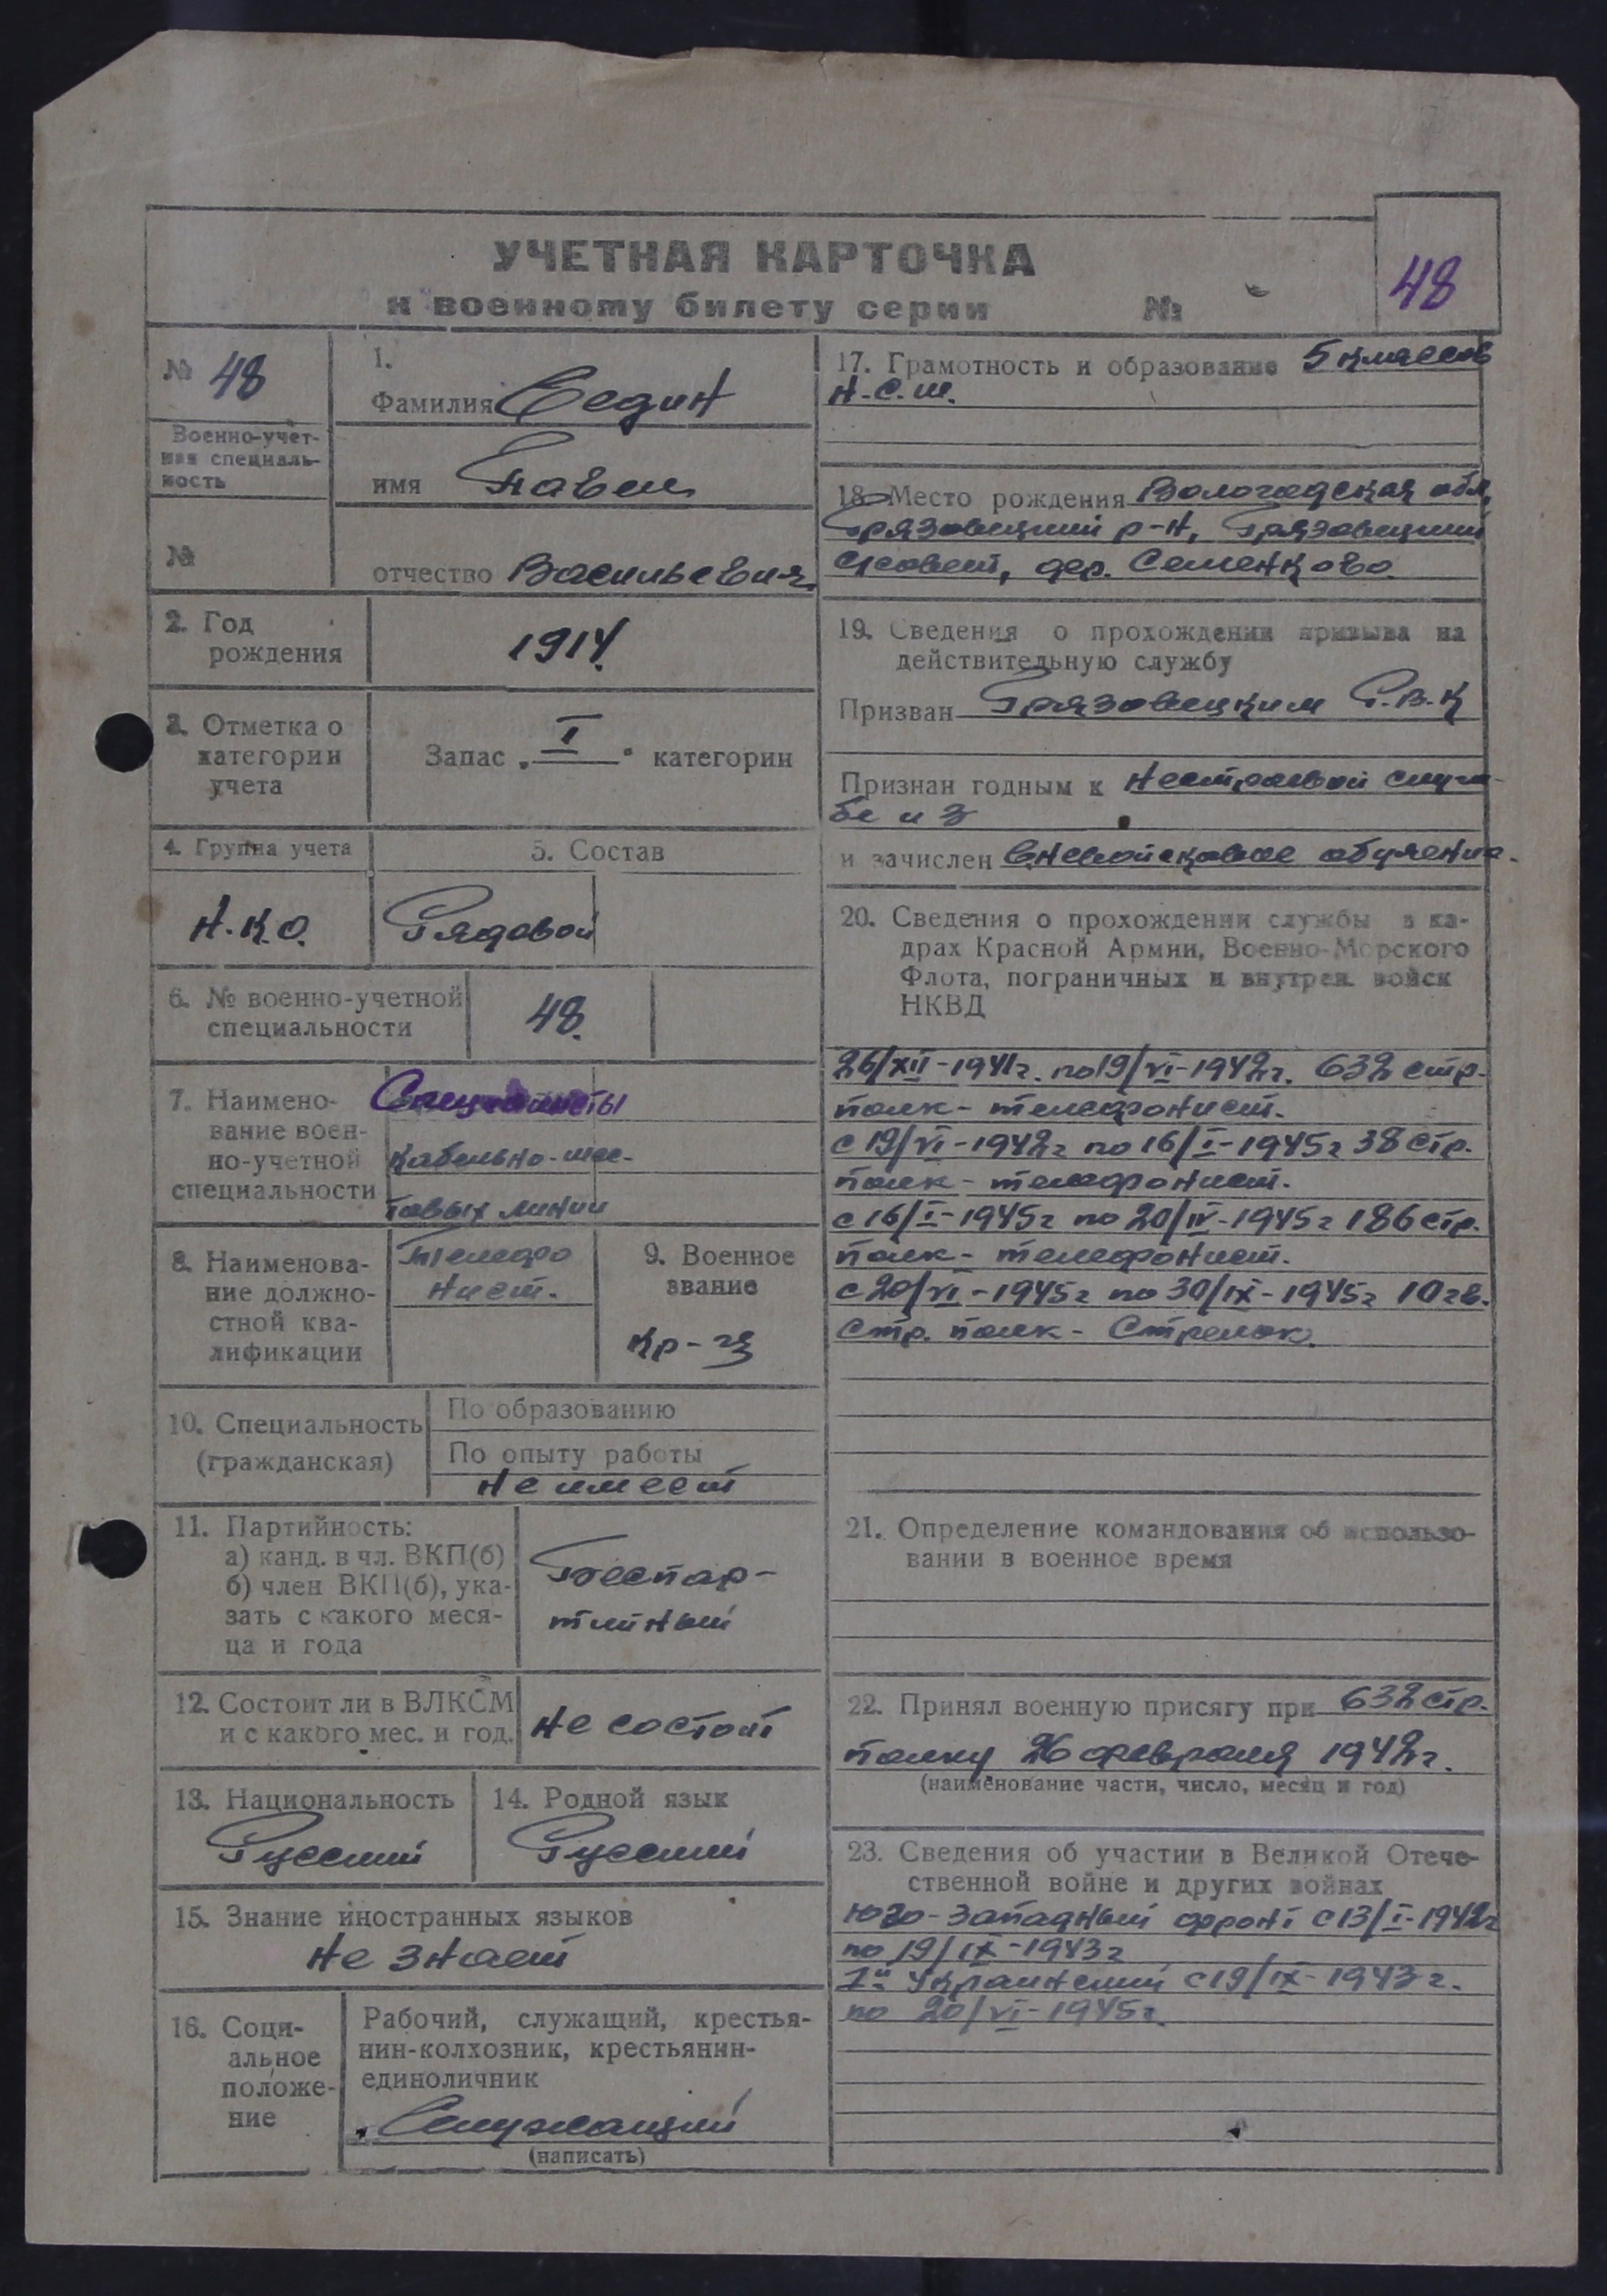 УЧЕТНАЯ КАРТОЧКА
к военному билету серии №
48
№ 48
Военно-учет-
ная специаль-
ность
№
1.
Фамилия Седин
имя Павел
отчество Васильевич.
2. Год
рождения
1914.
3. Отметка о
категории
учета
Запас „I" категории
4. Группа учета
Н.К.О.
5. Состав
Рядовой
6. № военно-учетной
специальности
48.
7. Наимено-
вание воен-
но-учетной
специальности
Специалисты
кабельно-шес-
товых линии
8. Наименова-
ние должно-
стной ква-
лификации
Телефо
нист.
9. Военное
звание
Кр-ц
10. Специальность
(гражданская)
По образованию
По опыту работы
не имеет
11. Партийность:
а) канд. в чл. ВКП(б)
б) член ВКП(б), ука-
зать с какого меся-
ца и года
Беспар-
тийный
12. Состоит ли в ВЛКСМ
и с какого мес. и год.
Не состоит
13. Национальность
Русский
14. Родной язык
Русский
15. Знание иностранных языков
Не знает
16. Соци-
альное
положе-
ние
Рабочий, служащий, крестья-
нин-колхозник, крестьянин-
единоличник
Служащий
(написать)
17. Грамотность и образование 5 классов
Н.С.Ш.
18. Место рождения Вологодская обл,
Грязовецкий р-н, Грязовецкий
с/совет, дер. Семенково.
19. Сведения о прохождении призыва на
действительную службу
Призван Грязовецким Р.В.К
Признан годным к нестроевой служ-
бе из
и зачислен вневойсковое обучение.
20. Сведения о прохождении службы в ка-
драх Красной Армии, Военно-Морского
Флота, пограничных и внутрен. войск
НКВД
26/XII-1941г. по 19/VI-1942г. 632 стр.
полк - телефонист.
с 19/VI-1942г по 16/I-1945г 38 стр.
полк - телефонист.
с 16/I-1945г по 20/IV-1945г 186 стр.
полк - телефонист.
с 20/VI-1945г по 30/IX-1945г 10 гв.
Стр. полк - Стрелок.
21. Определение командования об использо-
вании в военное время
22. Принял военную присягу при 632 стр.
полку 26 февраля 1942г.
(наименование части, число, месяц и год)
23. Сведения об участии в Великой Отече-
ственной войне и других войнах
Юго-Западный фронт с 13/I-1942г
по 19/IX-1943г
1й Украинский с 19/IX-1943г.
по 20/VI-1945г.